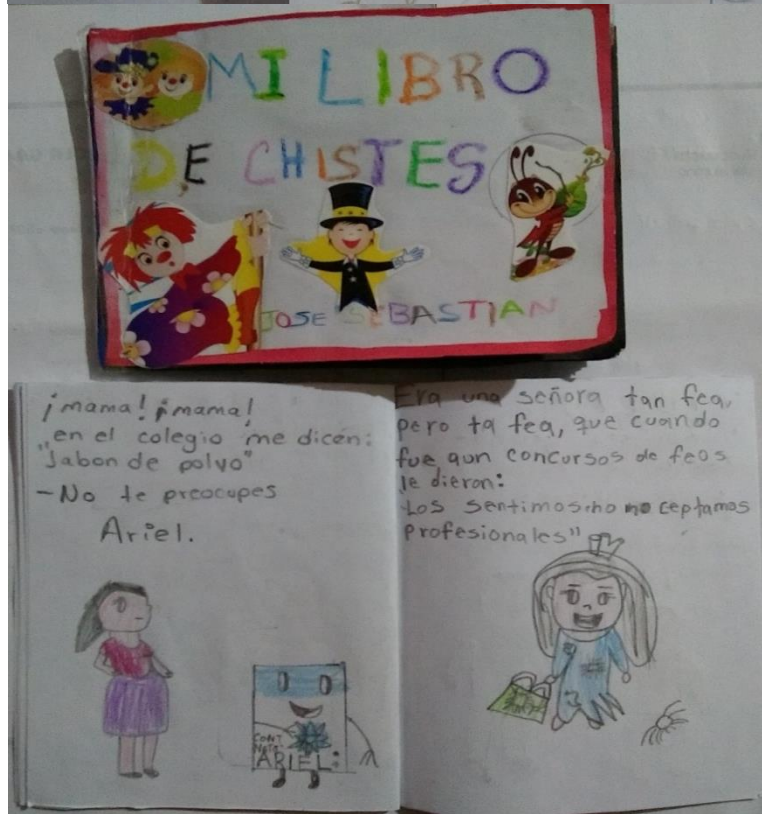 MI LIBRO
DE CHISTES
JOSE SEBASTIAN
¡mama! ¡mama!
"en el colegio me dicen:
"Jabon de polvo"
-No te preocupes
Ariel.
ARIEL
Era una señora tan fea,
pero ta fea, que cuando
fue aun concursos de feos
le dieron:
Los sentimos no ceptamos
profesionales"